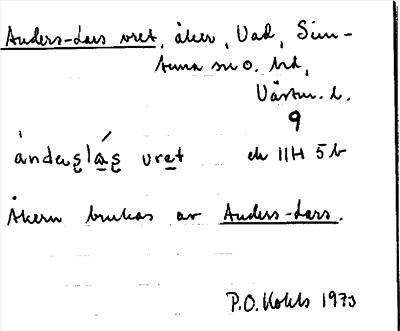 Anders-Lars vret, åker, Vad, Sim-
tuna sn o. hd,
Västm. l.
9
ek 11H 5b
Åkern brukas av Anders-Lars.
P.O. 1973